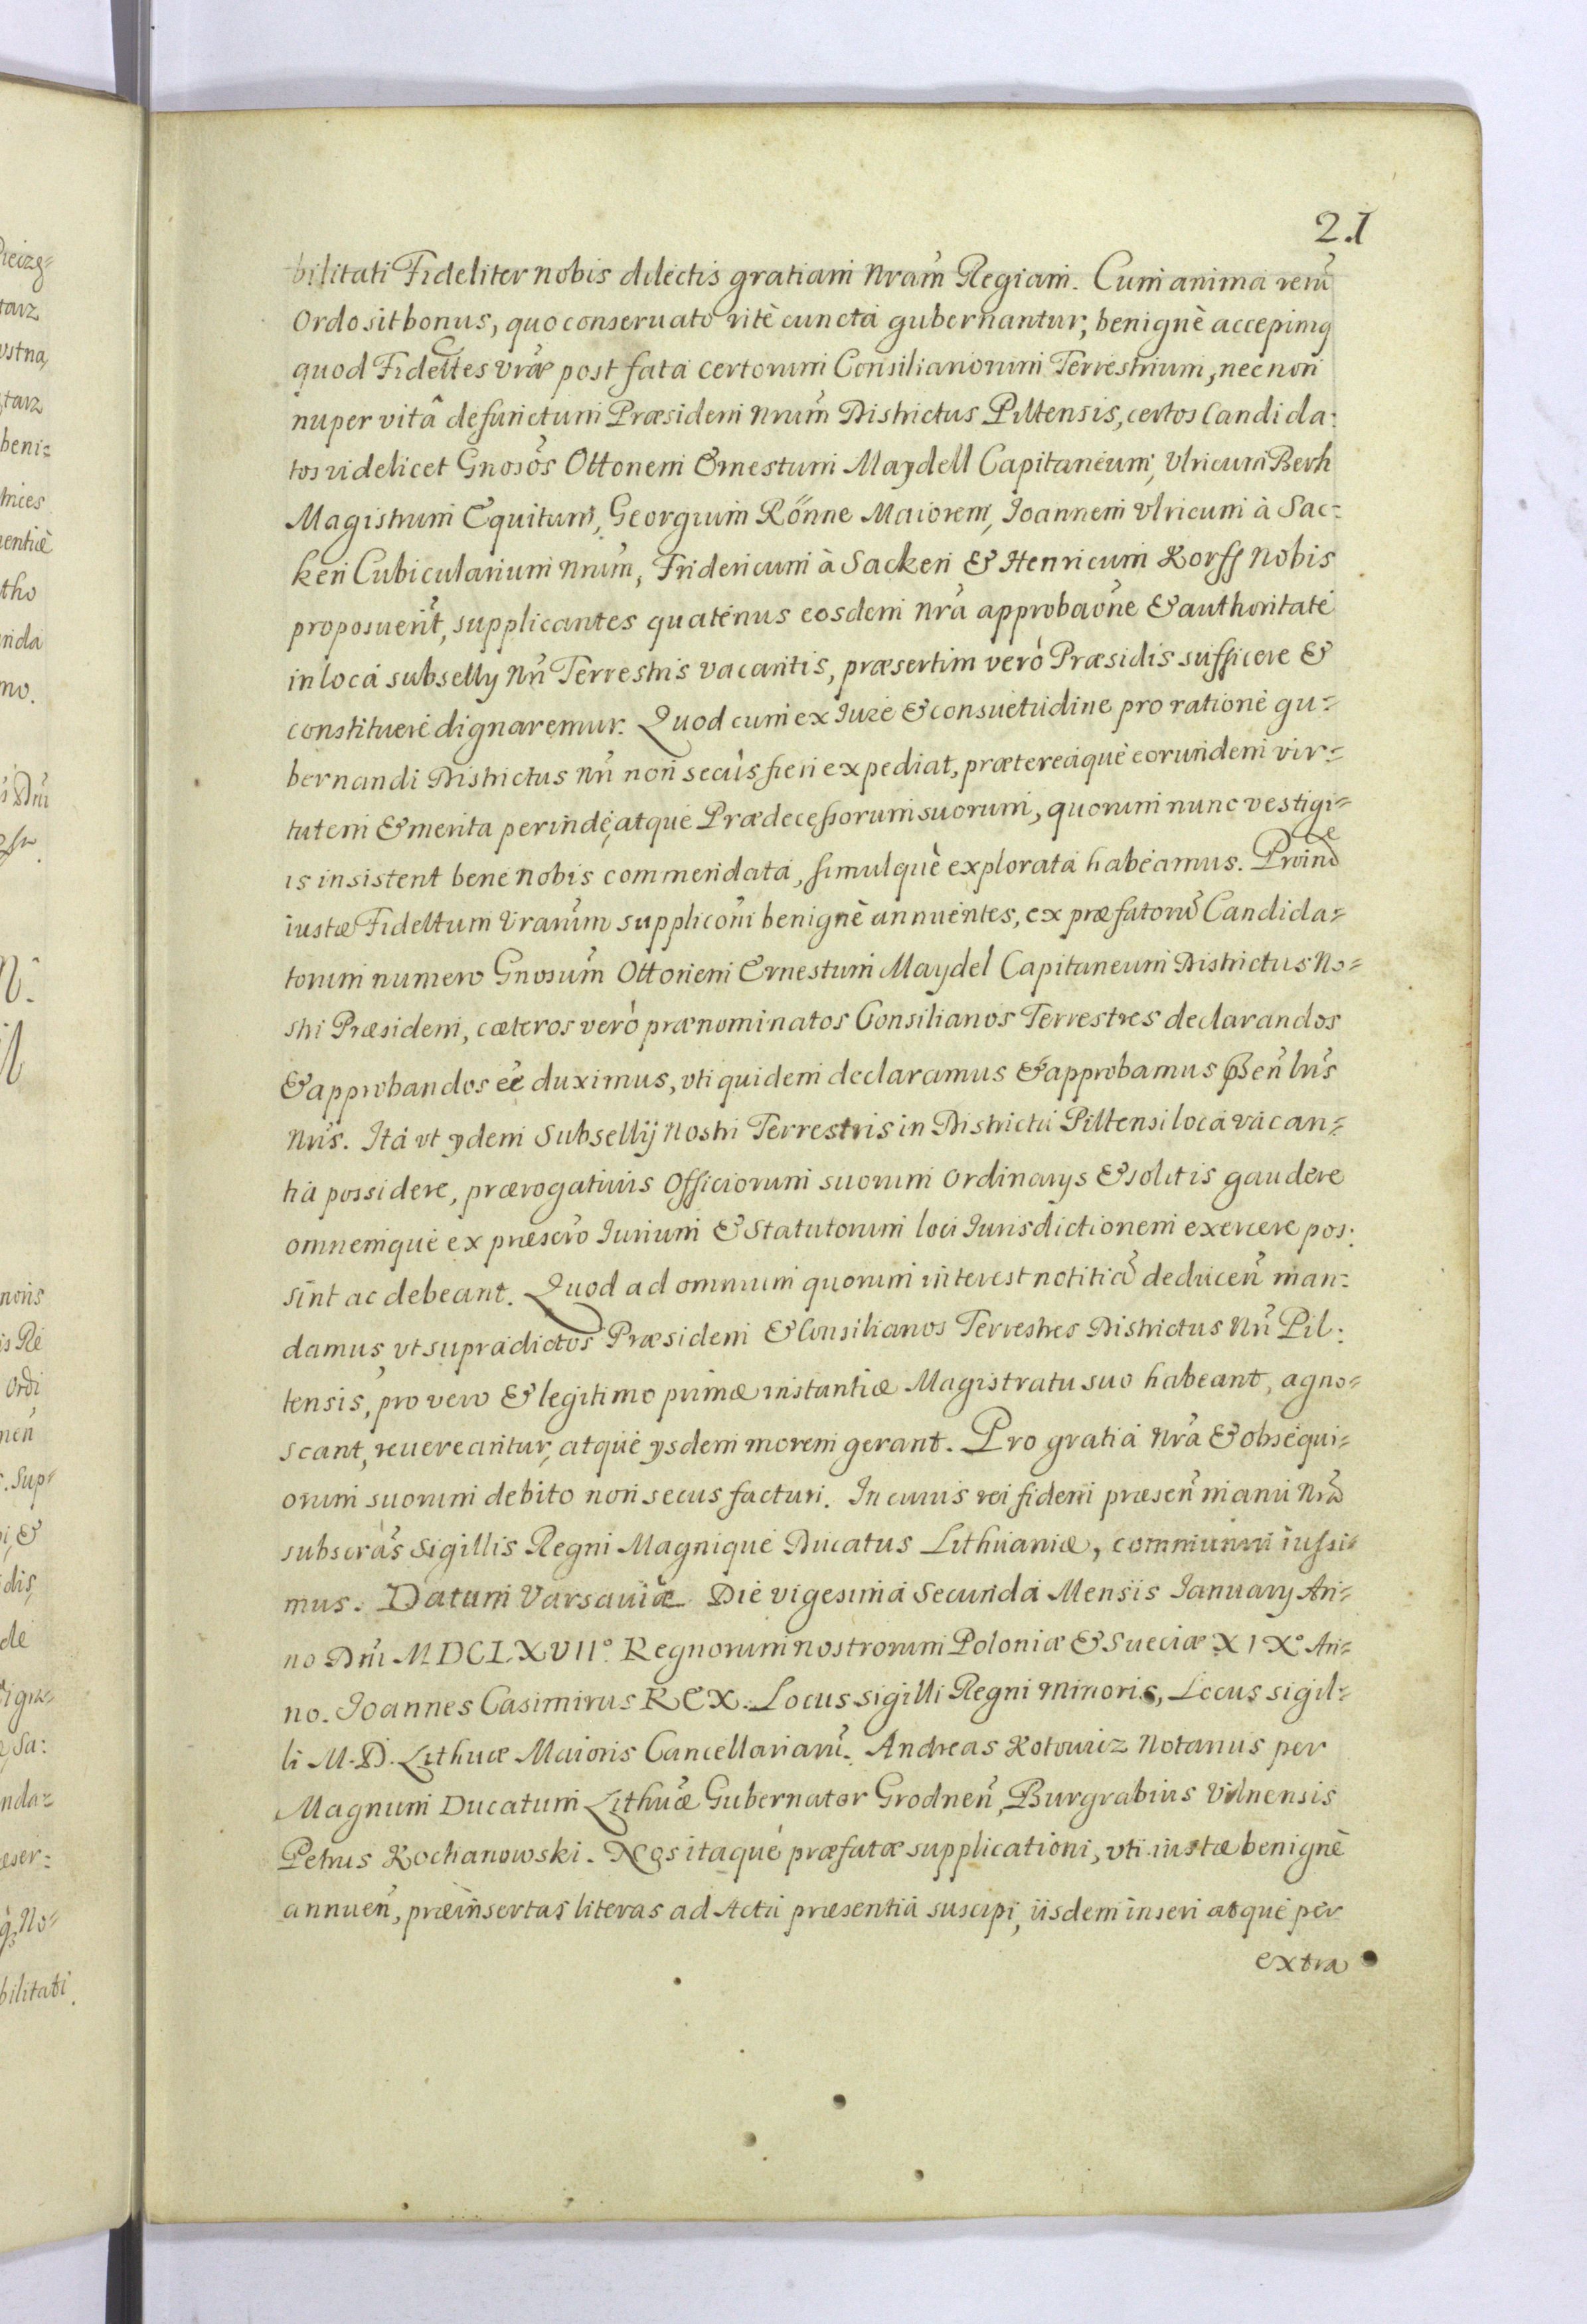 21
bilitati Fideliter nobis dilectis gratiam Nram Regiam. Cum anima reru
Ordo sit bonus, quo conseruato ritè cuncta gubernantur, benignè accepimq
quod Fidettes Vræ post fata certorum Consiliariorum Terrestrium, nec non
nuper vitâ defunctum Præsidem Nrum Districtus Piltensis, certos Candida:
tos videlicet Gnosos Ottonem Ernestum Maydell Capitaneum, Vlricum Berh
Magistrum Equitum, Georgium Rönne Maiorem, Joannem Vlricum à Sac:
ken Cubicularium Nrum, Fridericum à Sacken & Henricum Korff Nobis
proposuerit, supplicantes quatenus eosdem Nra approbaone & authoritate
in loca subsellÿ Nri Terrestris vacantis, præsertim verò Præsidis sufficere &
constituere dignaremur. Quod cum ex Iure & consuetudine pro ratione gu=
bernandi Districtus Nri non secùs fieri expediat, prætereaquè eorundem vir=
tutem & merita perindè, atque Prædecessorum suorum, quorum nunc vestigi=
is insistent bene Nobis commendata, simulquè explorata habeamus. Proinde
iustæ Fidettum Vrarum suppliconi benignè annuentes, ex præfatoru Candida=
torum numero Gnosum Ottonem Ernestum Maydel Capitaneum Districtus No=
stri Præsidem, cæteros verò prænominatos Consiliarios Terrestres declarandos
& approbandos eê duximus, vti quidem declaramus & approbamus Psen lris
Nris. Ità vt ÿdem Subsellij Nostri Terrestris in Districtu Piltensi loca vacan=
tia possidere, prærogatiuis Officiorum suorum Ordinarÿs & solitis gaudere
omnemque ex præscro Iurium & Statutorum loci Iurisdictionem exercere pos:
sint ac debeant. Quod ad omnium quorum interest notitia deducen man:
damus vt supradictos Præsidem & Consiliarios Terrestres Districtus Nri Pil:
tensis, pro vero & legitimo primæ instantiæ Magistratu suo habeant, agno=
scant, reuereantur, atque ÿsdem morem gerant. Pro gratia Nra & obsequi=
orum suorum debito non secus facturi. In cuius rei fidem præsen manu Nra
subscras Sigillis Regni Magnique Ducatus Lithuaniæ, communiri iussi=
mus. Datum Varsauiæ Die vigesima Secunda Mensis Ianuarÿ An=
no Dni MDCLXVII° Regnorum nostrorum Poloniæ & Sueciæ XIX° An=
no. Joannes Casimirus REX. Locus sigilli Regni Minoris, Locus sigil=
li M. D. Lithuæ Maioris Cancellariaru. Andreas Kotowicz Notarius per
Magnum Ducatum Lithuæ Gubernator Grodnen, Burgrabius Vilnensis
Petrus Kochanowski. Nos itaque præfatæ supplicationi, vti iustæ benignè
annuen, præinsertas literas ad Acta præsentia suscipi, iisdem inseri atque per
extra